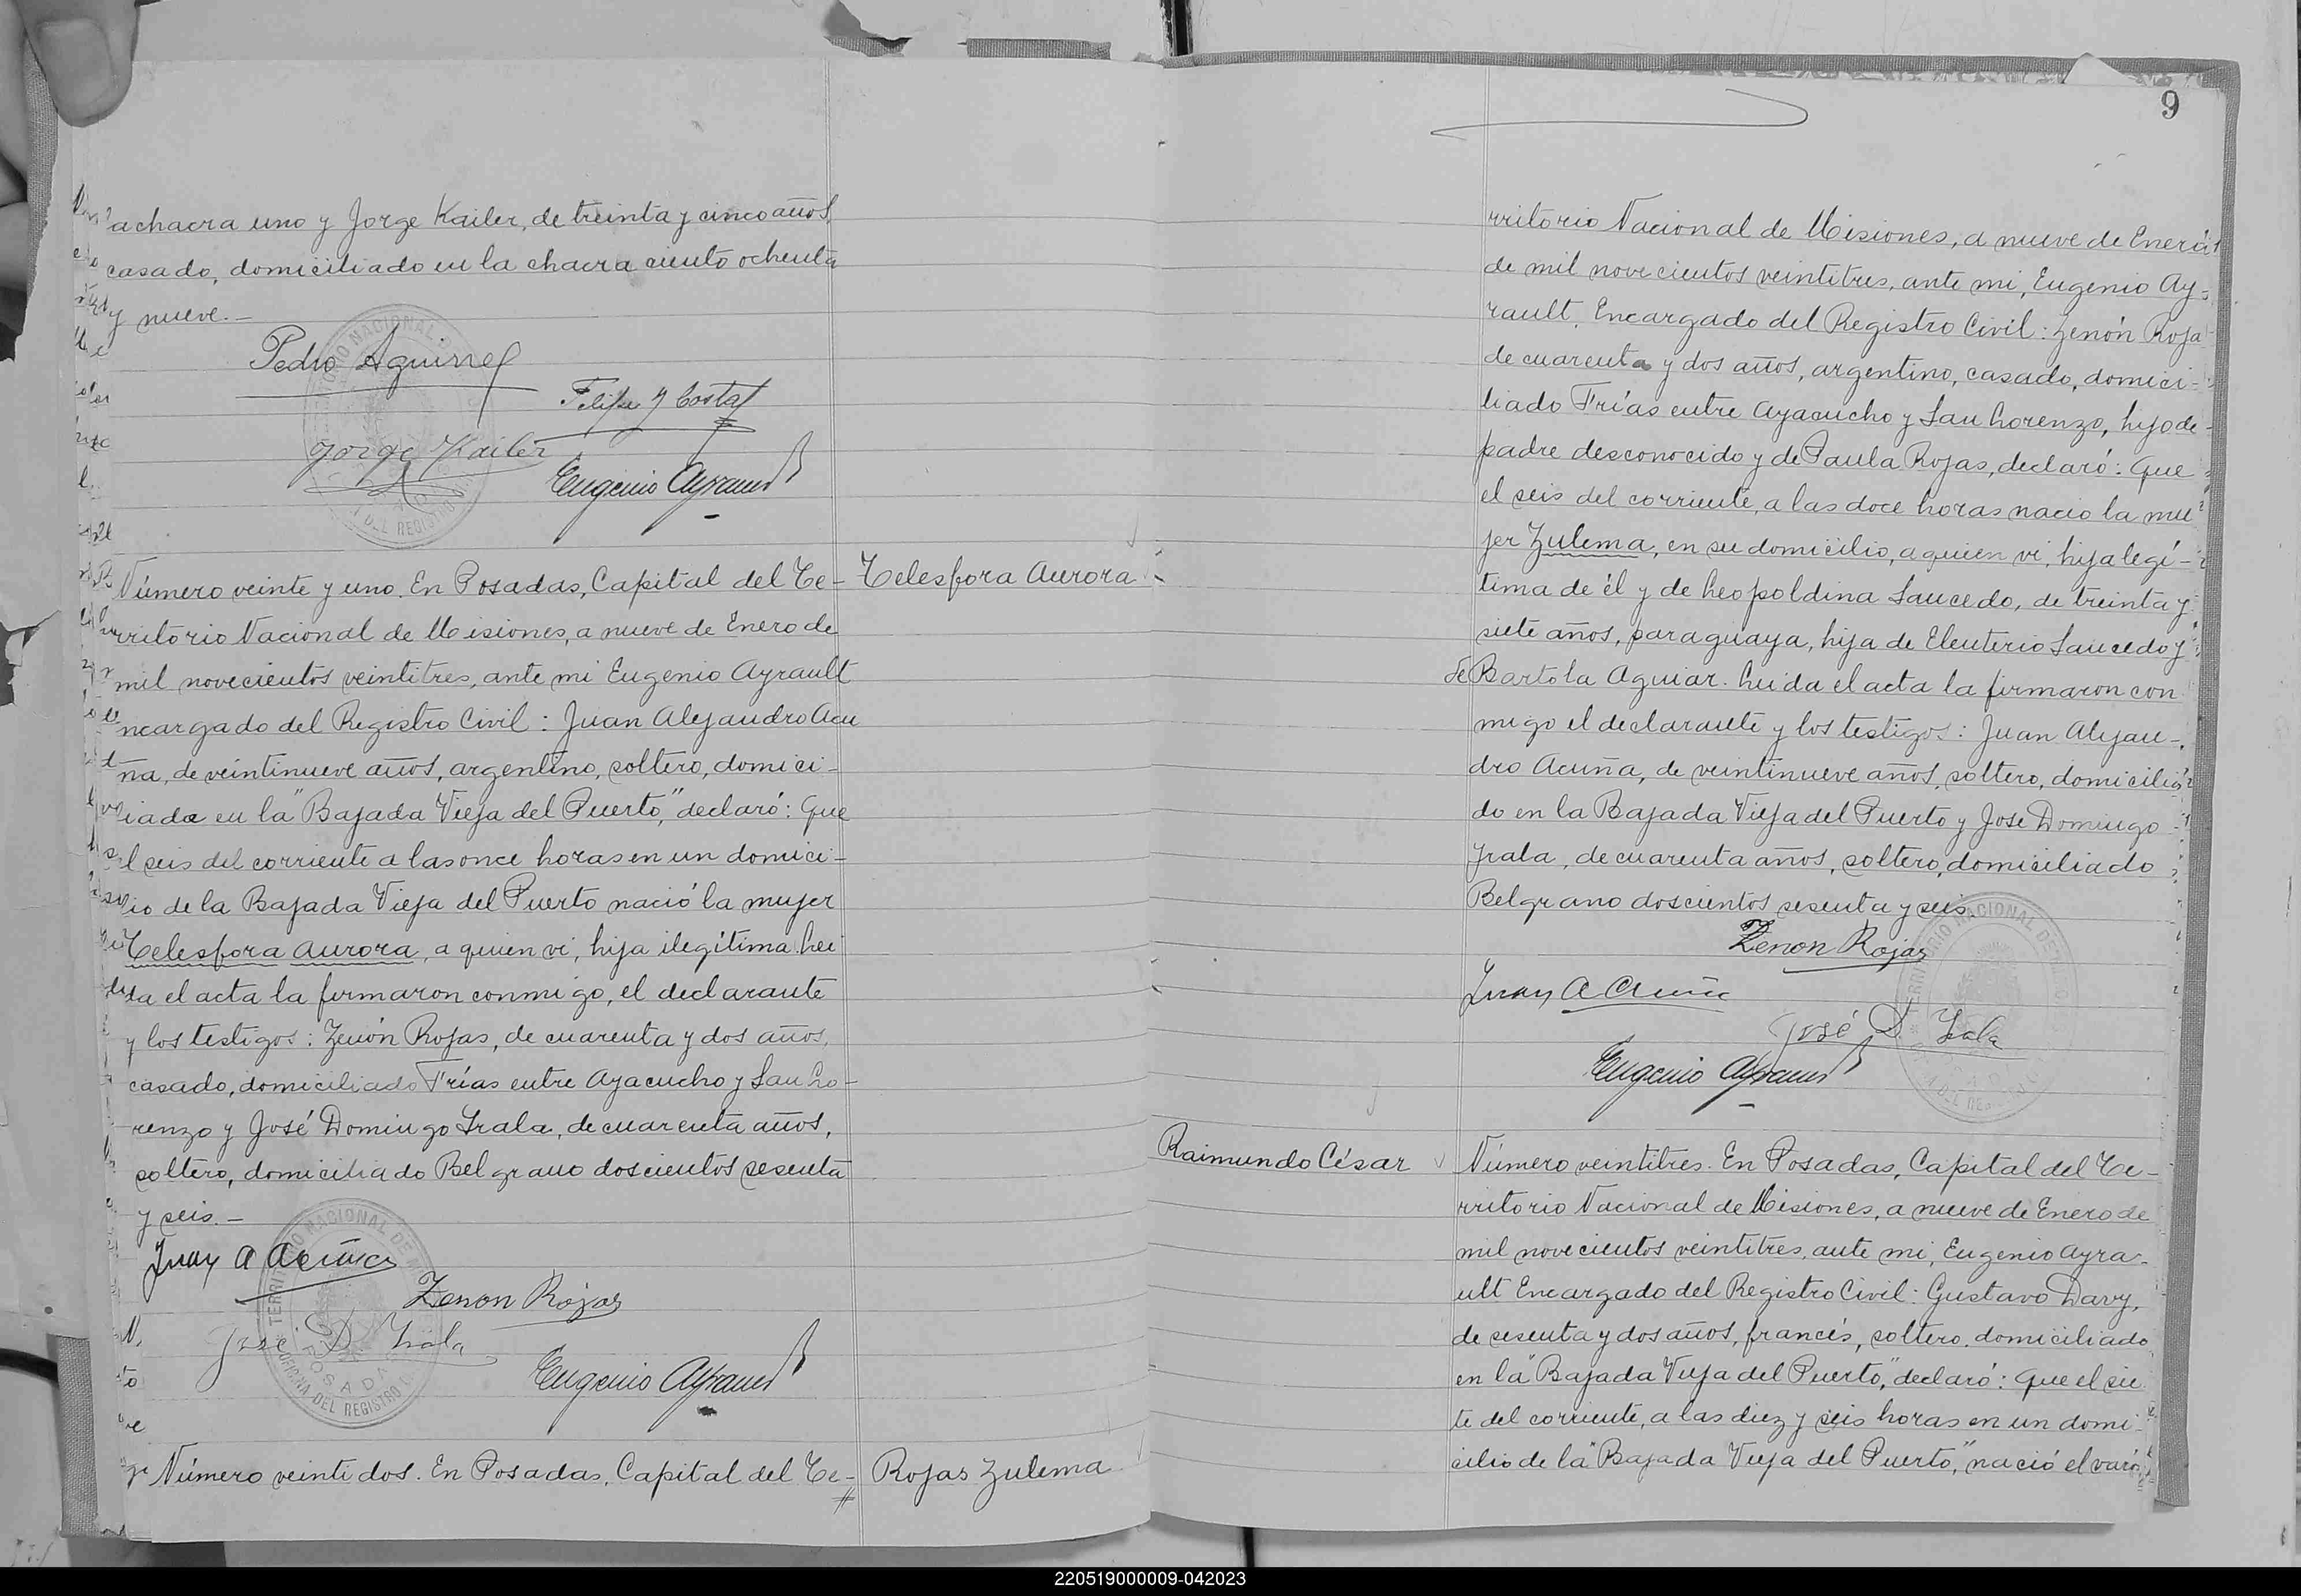 la chacra uno y Jorge Kailer, de treinta y cinco años,
casado, domiciliado en la chacra ciento ochenta
y nueve.—
Pedro Aguirre
Felipe y Costa
Jorge Kailer
Eugenio Ayrault
Número veinte y uno. En Posadas, Capital del Te-
Telesfora Aurora
rritorio Nacional de Misiones, a nueve de Enero de
mil novecientos veintitres, ante mi Eugenio Ayrault
encargado del Registro Civil: Juan Alejandro Acu
ña, de veintinueve años, argentino, soltero, domici-
liado en la "Bajada Vieja del Puerto," declaró: Que
el seis del corriente a las once horas en un domici-
lio de la Bajada Vieja del Puerto nació la mujer
Telesfora Aurora, a quien vi, hija ilegítima. Leí
da el acta la firmaron conmigo, el declarante
y los testigos: Zenón Rojas, de cuarenta y dos años,
casado, domiciliado Frías entre Ayacucho y San Lo-
renzo y José Domingo Irala, de cuarenta años,
soltero, domiciliado Belgrano doscientos sesenta
y seis.—
Juan A Acuña
Zenon Rojas
José D. Irala
Eugenio Ayrault
TERRITORIO NACIONAL DE
POSADAS
OFICINA DEL REGISTRO
Número veintidos. En Posadas, Capital del Te-
Rojas Zulema
9
rritorio Nacional de Misiones, a nueve de Enero
de mil novecientos veintitres, ante mi, Eugenio Ay-
rault, Encargado del Registro Civil: Zenón Roja
de cuarenta y dos años, argentino, casado, domici-
liado Frías entre Ayacucho y San Lorenzo, hijo de
padre desconocido y de Paula Rojas, declaró: Que
el seis del corriente, a las doce horas nacio la mu
jer Zulema, en su domicilio, a quien vi, hija legí-
tima de él y de Leopoldina Saucedo, de treinta y
siete años, paraguaya, hija de Eleuterio Saucedo y
de Bartola Aguiar. Leida el acta la firmaron con
migo el declarante y los testigos: Juan Alejan-
dro Acuña, de veintinueve años, soltero, domicilia
do en la Bajada Vieja del Puerto y José Domingo
Irala, de cuarenta años, soltero, domiciliado
Belgrano doscientos sesenta y seis.
Zenon Rojas
Juan A Acuña
José D. Irala
Eugenio Ayrault
Raimundo César
Número veintitres. En Posadas, Capital del Te-
rritorio Nacional de Misiones, a nueve de Enero de
mil novecientos veintitres, ante mi, Eugenio Ayra-
ult Encargado del Registro Civil: Gustavo Davy,
de sesenta y dos años, francés, soltero, domiciliado
en la "Bajada Vieja del Puerto," declaró: Que el sie
te del corriente, a las diez y seis horas en un domi-
cilio de la "Bajada Vieja del Puerto," nació el varó
220519000009-042023